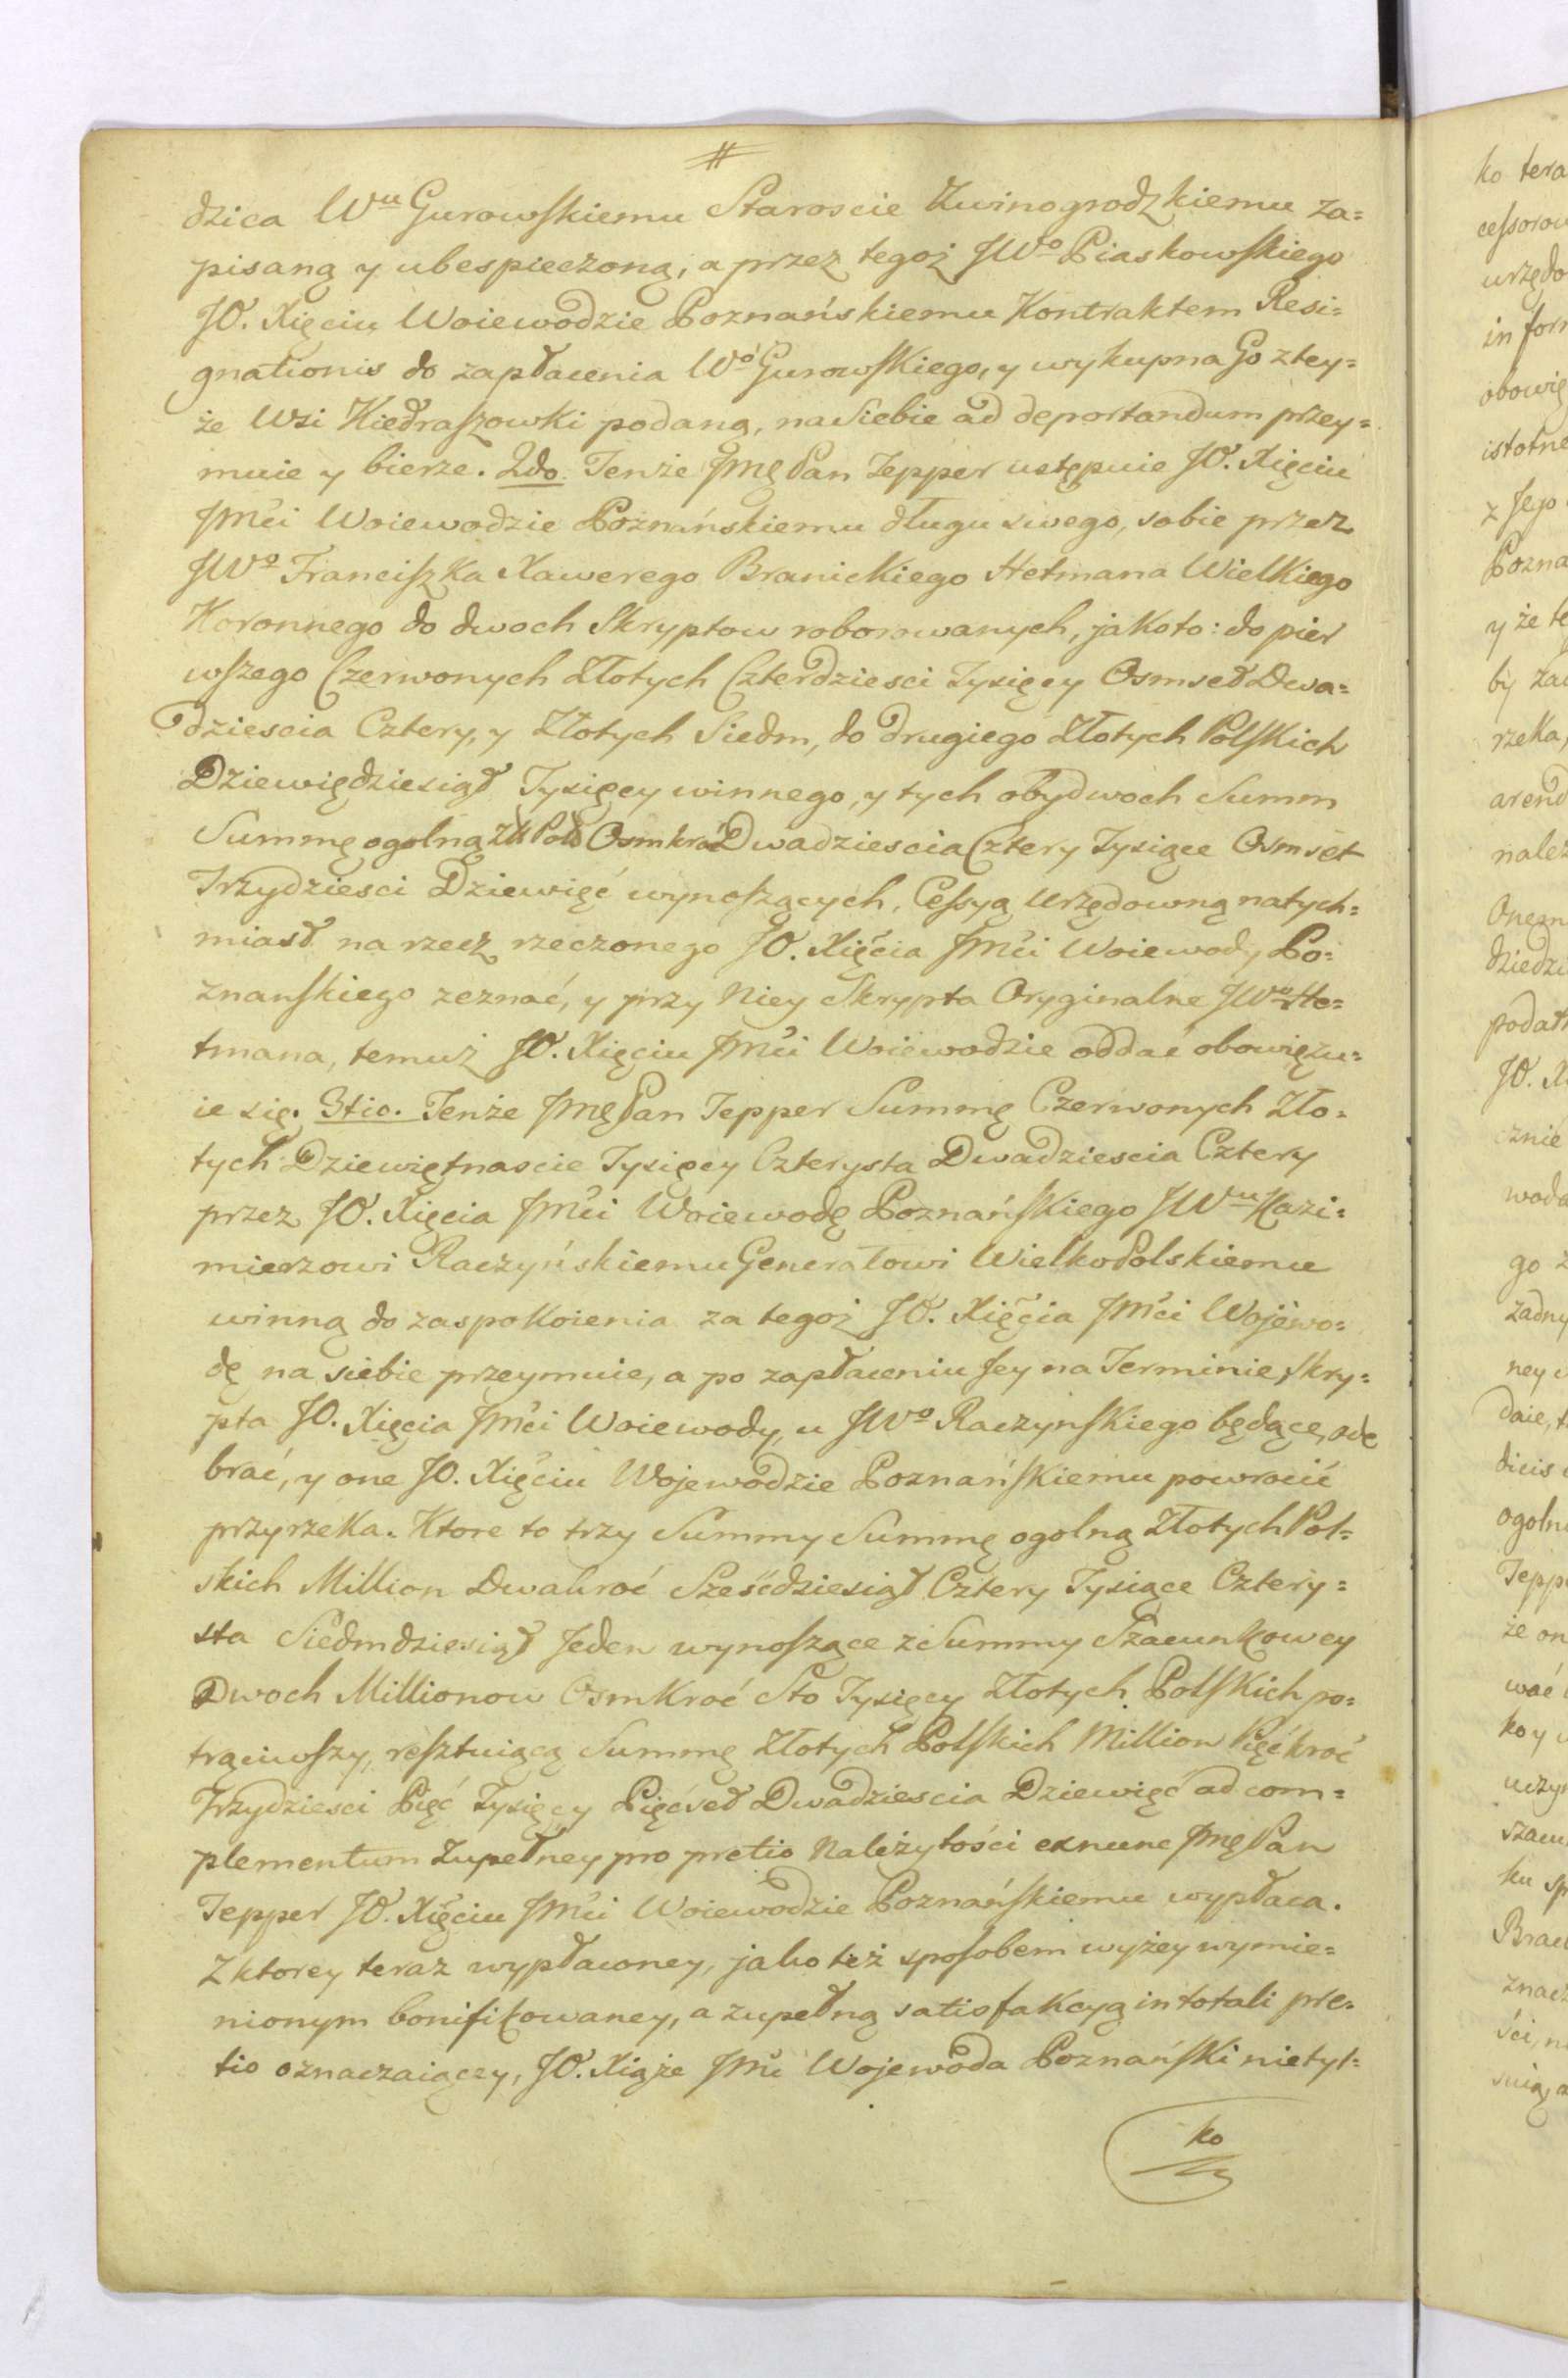 #
dzica W<sup>u</sup> Gurowskiemu Staroscie Zwinogrodzkiemu za=
pisaną y ubespieczoną, a przez tegoż JW<sup>o</sup> Piaskowskiego
JO. Xięciu Woiewodzie Poznańskiemu Kontraktem Resi=
gnationis do zapłacenia W<sup>o</sup> Gurowskiego, y wykupna Go ztey=
że Wsi Kiedraszowki podaną, na Siebie ad deportandum przey=
muie y bierze. 2do. Tenże Jmę Pan Tepper ustępuie JO. Xięciu
Jmci Woiewodzie Poznańskiemu długu swego, sobie przez
JW<sup>o</sup> Franciszka Xawerego Branickiego Hetmana Wielkiego
Koronnego do dwoch Skryptow roborowanych, jakoto: do pier
wszego Czerwonych Złotych Czterdziesci Tysięcy Osmset Dwa=
dziescia Cztery, y Złotych Siedm, do drugiego Złotych Polskich
Dziewiędziesiąt Tysięcy winnego, y tych obydwoch Summ
Summę ogolną Zł Pol Osmkroć Dwadziescia Cztery Tysiące Osmset
Trzydziesci Dziewięć wynoszących, Cessyą Urzędowną natych=
miast na rzecz rzeczonego JO. Xięcia Jmci Woiewody Po=
znanskiego zeznać, y przy Niey Skrypta Oryginalne JW<sup>o</sup> He=
tmana, temuż JO. Xięciu Jmci Woiewodzie oddać obowięzu=
ie się. 3tio. Tenże Jmę Pan Tepper Summę Czerwonych Zło=
tych Dziewiętnascie Tysięcy Czterysta Dwadziescia Cztery
przez JO. Xięcia Jmci Woiewodę Poznańskiego JW<sup>u</sup> Kazi=
mierzowi Raczyńskiemu Generałowi Wielkopolskiemu
winną do zaspokoienia za tegoż JO. Xięcia Jmci Wojewo=
dę na siebie przeymuie, a po zapłaceniu Jey na Terminie, Skry=
pta JO. Xięcia Jmci Woiewody, u JW<sup>o</sup> Raczynskiego będące, ode
brać, y one JO. Xięciu Wojewodzie Poznańskiemu powrocić
przyrzeka. Ktore to trzy Summy Summę ogolną Złotych Pol=
skich Million Dwakroć Sześćdziesiąt Cztery Tysiące Cztery=
sta Siedmdziesiąt Jeden wynoszące z Summy Szacunkowey
Dwoch Millionow Osmkroć Sto Tysięcy Złotych Polskich po=
trąciwszy, resztuiącą Summę Złotych Polskich Million Pięćkroć
Trzydziesci Pięć Tysięcy Pięćset Dwadziescia Dziewięć ad com=
plementum Zupełney pro pretio Należytości exnunc Jmę Pan
Tepper JO. Xięciu Jmci Woiewodzie Poznańskiemu wypłaca.
Z ktorey teraz wypłaconey, jako też sposobem wyżey wymie=
nionym bonifikowaney, a zupełną satisfakcyą in totali pre=
tio oznaczaiącey, JO. Xiąże Jmć Wojewoda Poznański nietyl=
ko
ko tera
cessorow
urzędo
in for
obowię
istotne
z Jego
Pozna
y że te
by za
rzeka,
arend
należ
dziedzi
podat
JO. X
cznie
woda
go z
żadny
ney
daie, t
dicis
ogoln
Tepp
że on
wać
ko y
uczy
szacu
ku sp
Brac
znacz
ści, n